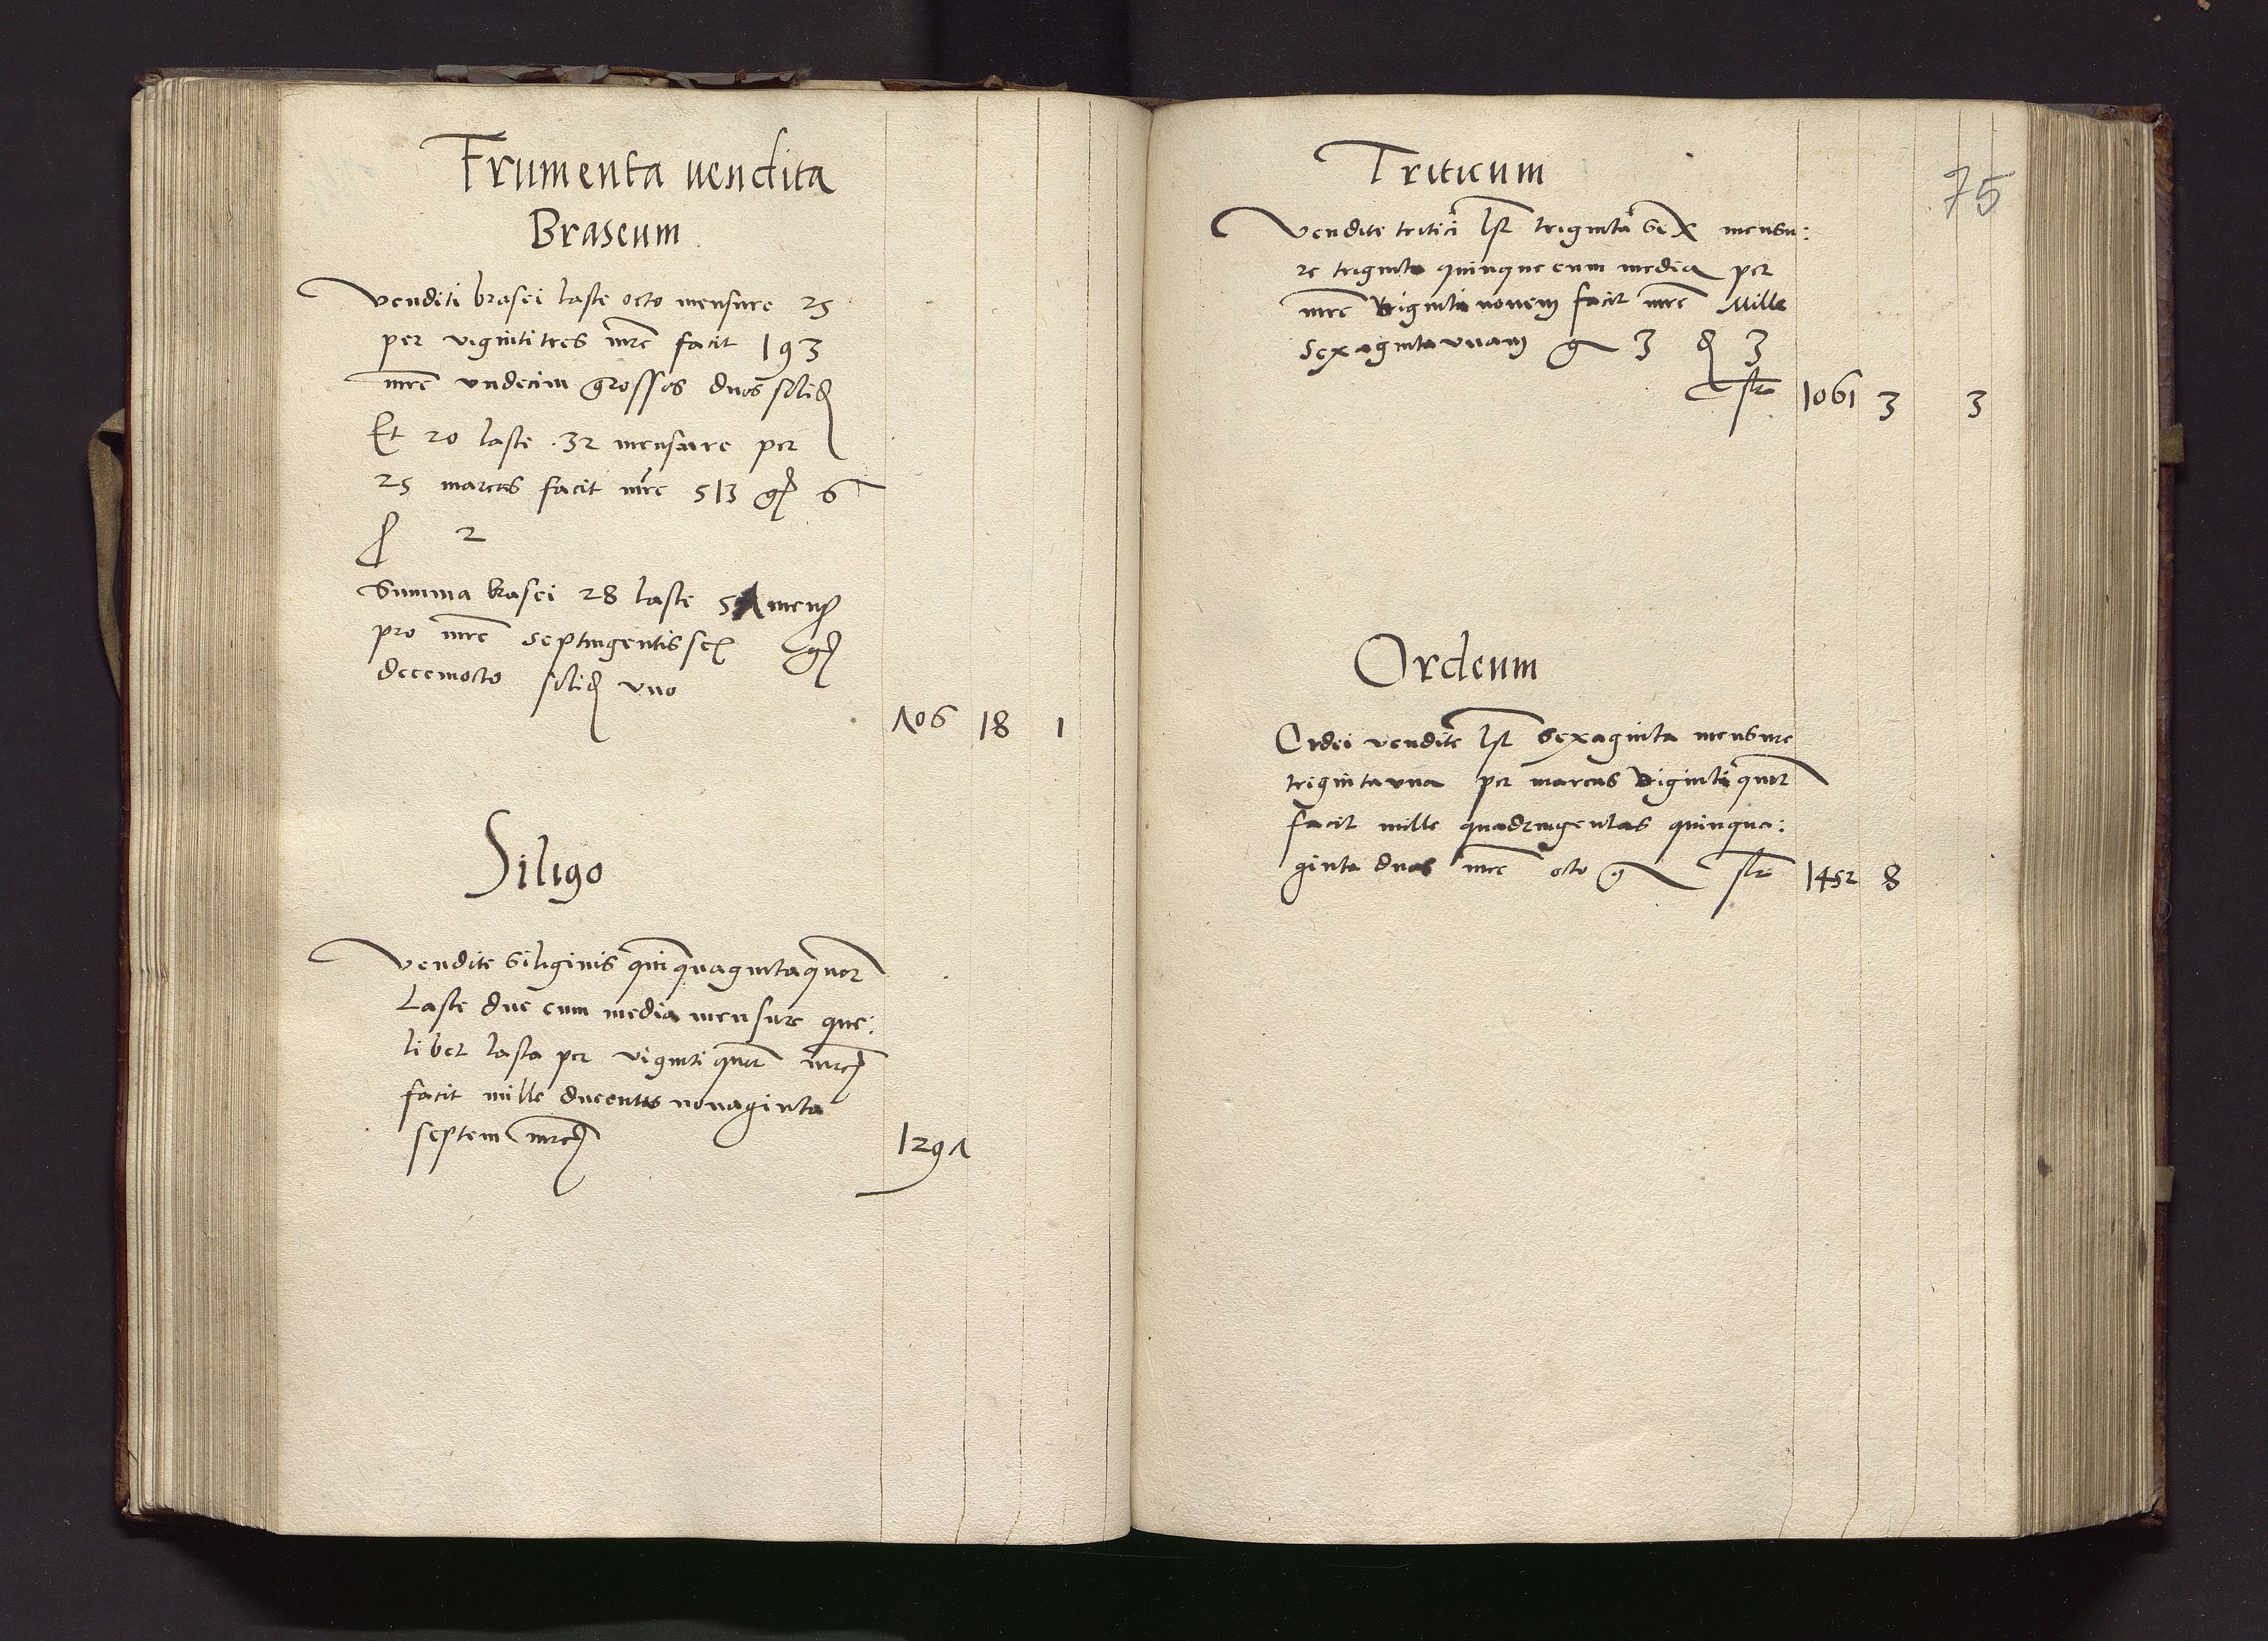 Frumenta uendita
Braseum
Venditi brasei laste octo mensure 25
per vigintitres mrc facit 193
mrc vndecim grossos duos solid
Et 20 laste . 32 mensure per
25 marcas facit mrc 513 g 6
s 2
Summa brasei 28 laste 57 mens
pro mrc septingentis sex g
decemocto solid vno
706 18 1
Siligo
Vendite siliginis quinquagintaquor
Laste due cum media mensure que:
libet lasta per viginti quor mrc
facit mille ducentas nonaginta
septem mrc
1297
75
Triticum
Vendite tritici lst triginta sex mensu:
re triginta quinque cum media per
mrc viginti novem facit mrc Mille
sexagintaunam g 3 d 3
1061 3 3
Ordeum
Ordei vendite lst sexaginta mensure
trigintauna per marcas viginti quor
facit mille quadringentas quinqua:
ginta duas mrc octo g
1452 8